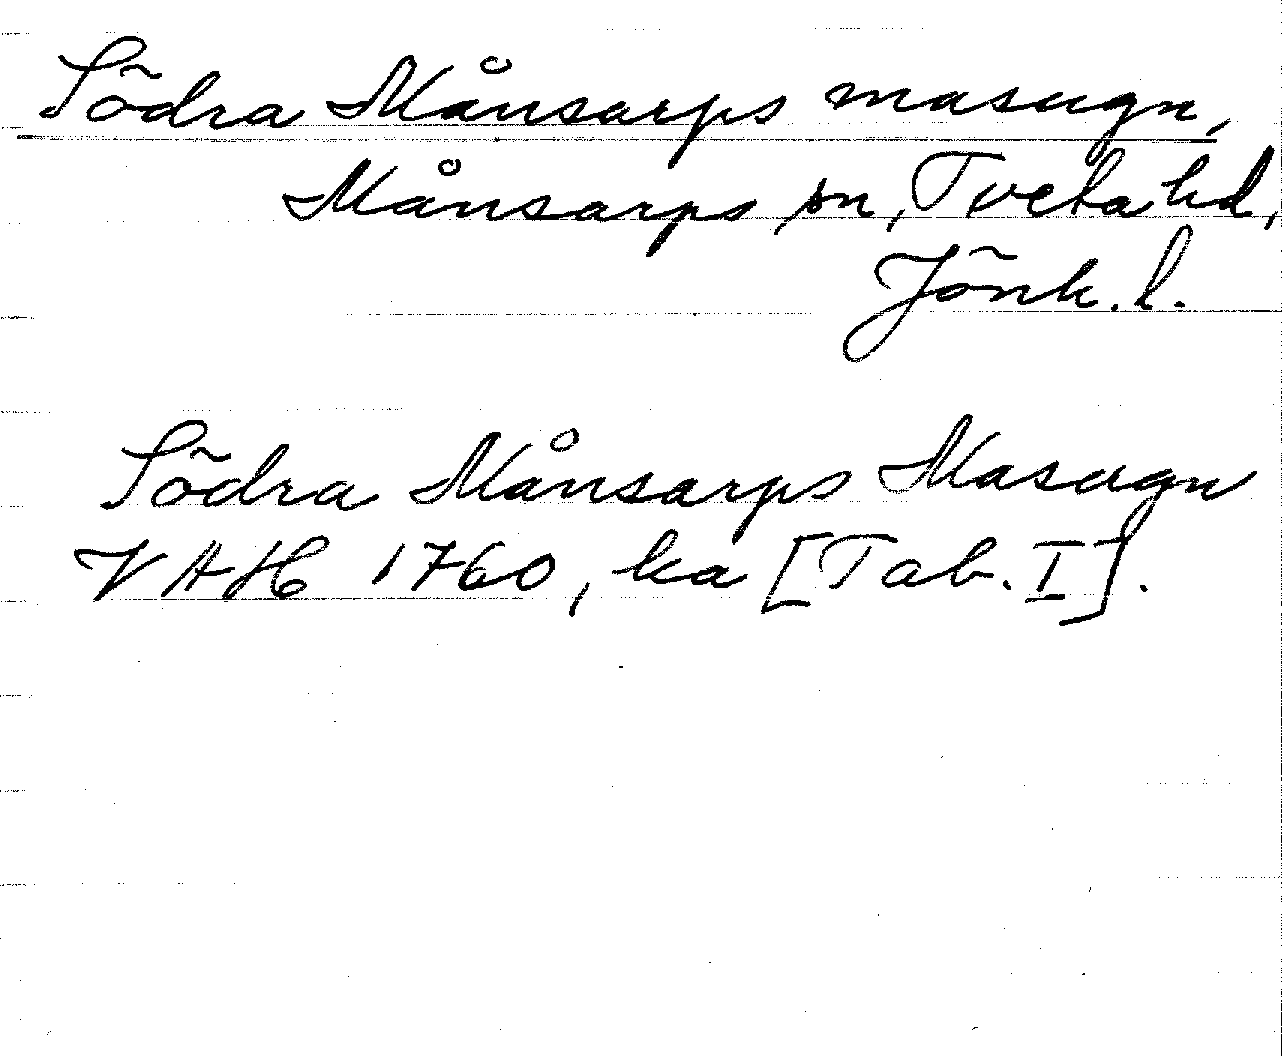 Södra Månsarps masugn,
Månsarps sn, Tveta hd,
Jönk. l.
Södra Månsarps Masugn
VAH 1760, ka [Tab. I].